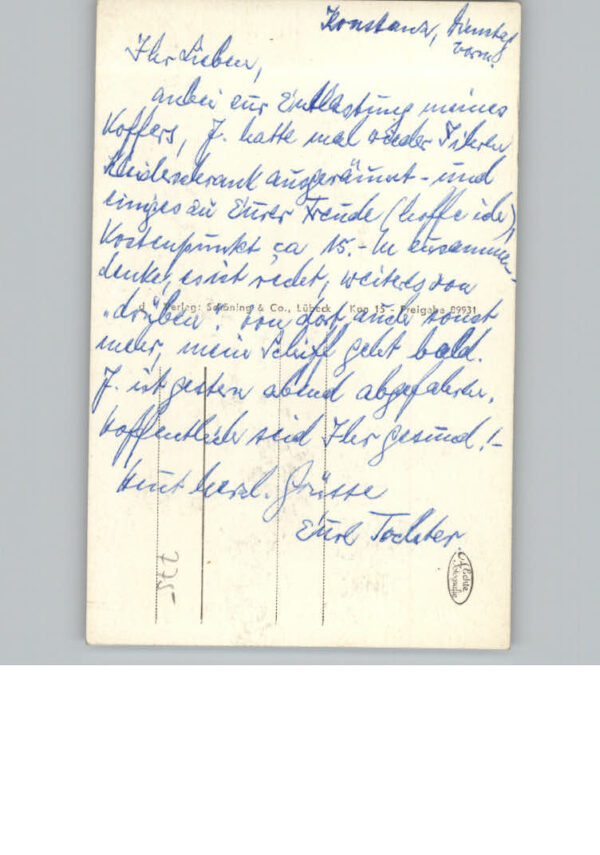 Konstanz, Dienstag
vorm.
Ihr Lieben,
anbei zur Entlastung meines
Koffers, J. hatte mal wieder ihren
Kleiderschrank ausgeräumt - und
einges zu Eurer Freude (hoffe ich),
Kostenpunkt ca 15.- M zusammen
denke, es ist recht, weiteres von
"drüben". Von dort auch sonst
mehr, mein Schiff geht bald.
J. ist gestern abend abgefahren.
Hoffentlich seid Ihr gesund! -
Heut herzl. Grüsse
Eure Tochter.
Verlag: Schöning & Co., Lübeck Kon 15 - Freigabe 09931
Echte
Fotografie